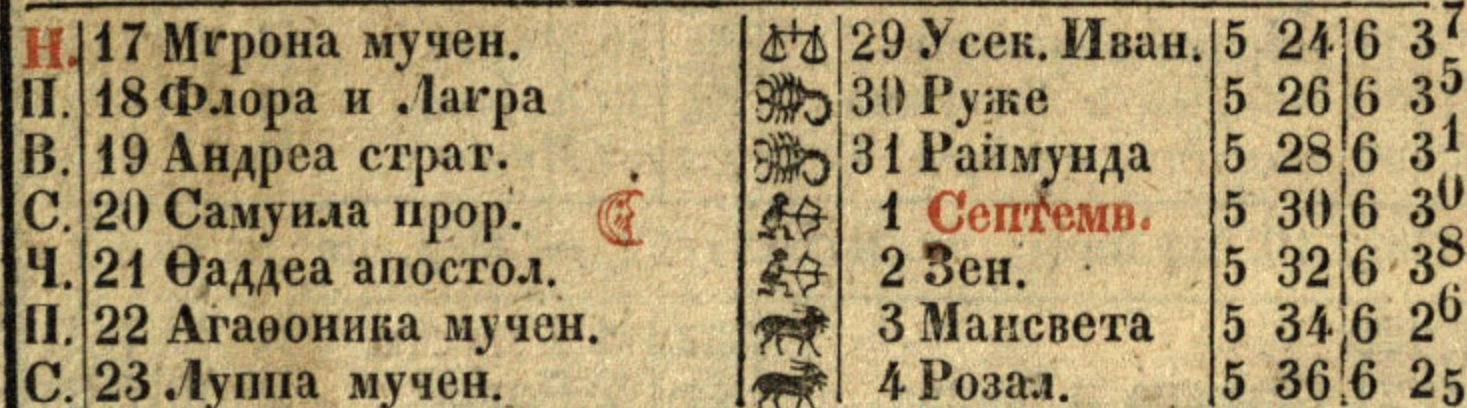 Н. 17 Мѵрона мучен. 29 Усек. Иван. 5 24 6 37
П. 18 Флора и Лаѵра 30 Руже 5 26 6 35
В. 19 Андреа страт. 31 Раймунда 5 28 6 31
С. 20 Самуила прор. 1 Септемв. 5 30 6 30
Ч. 21 Ѳаддеа апостол. 2 Зен. 5 32 6 38
П. 22 Агаѳоника мучен. 3 Мансвета 5 34 6 26
С. 23 Луппа мучен. 4 Розал. 5 36 6 25